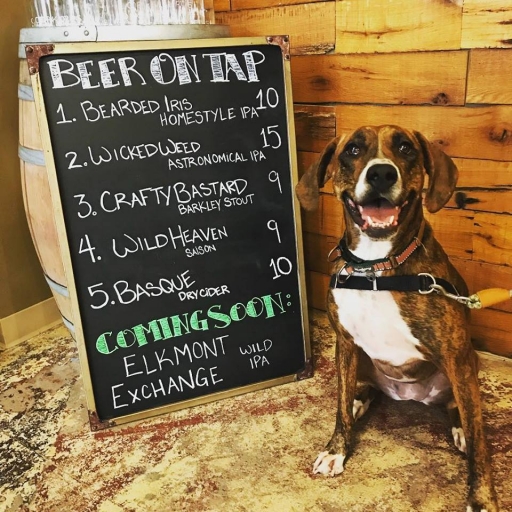 BEER ON TAP
1. BEARDED IRIS 10
HOMESTYLE IPA
2. WICKED WEED 15
ASTRONOMICAL IPA
3. CRAFTY BASTARD 9
BARKLEY STOUT
4. WILD HEAVEN 9
SAISON
5. BASQUE 10
DRY CIDER
COMING SOON:
ELKMONT WILD
EXCHANGE IPA